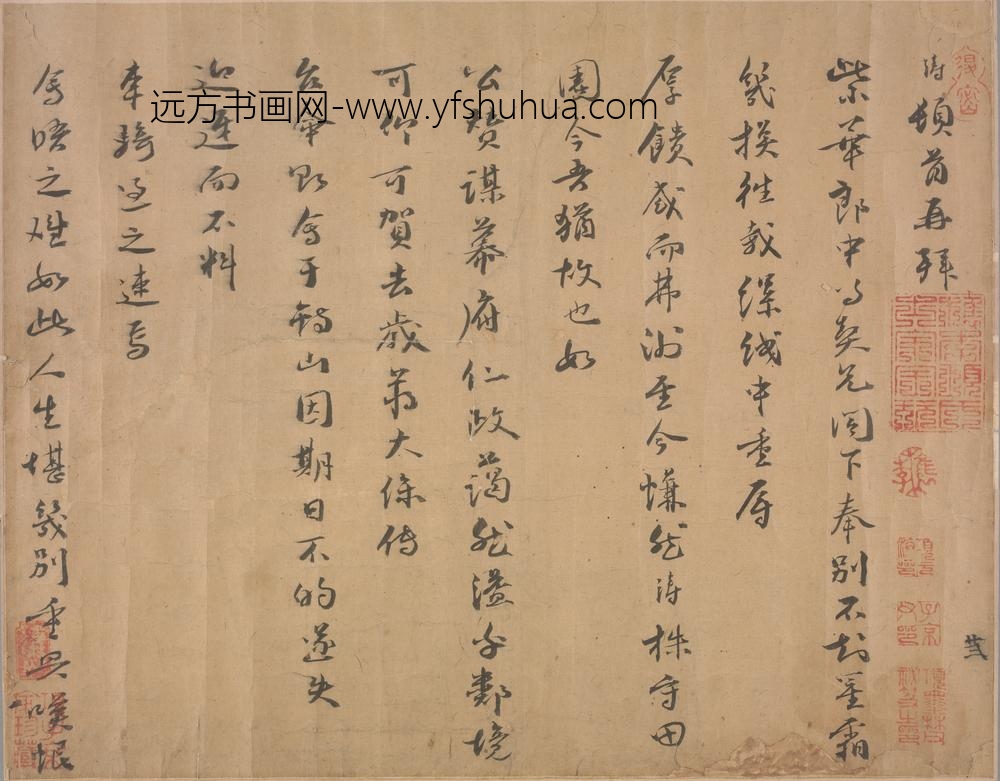 濤頓首再拜
紫華郎中契兄閣下奉別不知星霜
幾換往載縲紲中重辱
厚饋感而弗謝至今慊然濤株守田
園今吾猶故也如
公贊謀幕府仁政藹然溢乎鄰境
可仰可賀去歲大傳
會于錫山因期日不的遂失
迎而不料
車騎過之速焉
會晤之難如此人生堪幾別重興嘆悵
远方书画网-www.yfshuhua.com